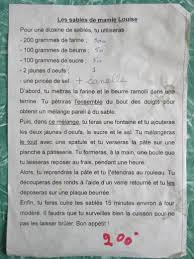 Les sablés de mamie Louise
Pour une dizaine de sablés, tu utiliseras :
- 200 grammes de farine :
- 100 grammes de beurre : 50
- 100 grammes de sucre : 50
- 2 jaunes d'oeufs : 1
- une pincée de sel + canelle
D'abord, tu mettras la farine et le beurre ramolli dans une
terrine. Tu pétriras l'ensemble du bout des doigts pour
obtenir un mélange pareil à du sable.
Puis, dans ce mélange, tu feras une fontaine et tu ajouteras
les deux jaunes d'oeufs, le sucre et le sel. Tu mélangeras
le tout avec une spatule et tu verseras la pâte sur une
planche à pâtisserie. Tu formeras, à la main, une boule que
tu laisseras reposer au frais, pendant une heure.
Alors, tu reprendras la pâte et tu l'étendras au rouleau. Tu
découperas des ronds à l'aide d'un verre retourné et tu les
déposeras sur une plaque beurrée.
Enfin, tu feras cuire les sablés 15 minutes environ à four
modéré. Il faudra que tu surveilles bien la cuisson pour ne
pas les laisser brûler. Bon appétit !
200°